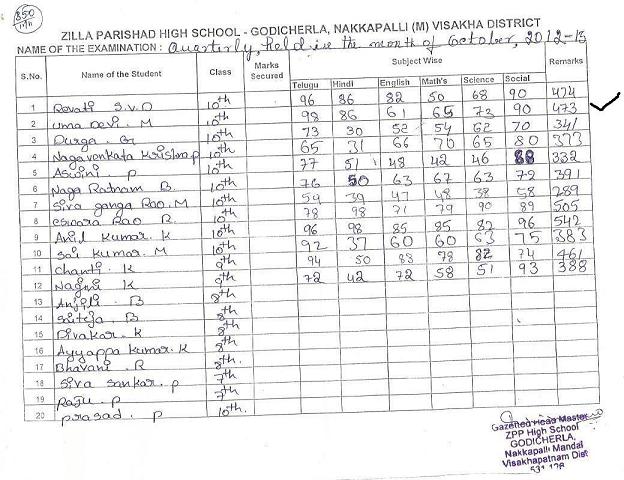 850
ZILLA PARISHAD HIGH SCHOOL - GODICHERLA, NAKKAPALLI (M) VISAKHA DISTRICT
NAME OF THE EXAMINATION : Quarterly, held in the month of October, 2012-13
S.No. Name of the Student Class Marks Secured Subject Wise Remarks
Telugu Hindi English Math's Science Social
1 Revati S.V.D 10th 96 86 82 50 68 90 474
2 Uma Devi. M 10th 98 86 61 65 73 90 473
3 Durga. Gr 10th 73 30 52 54 62 70 341
4 Nagavenkata Krishna p 10th 65 31 66 70 65 80 377
5 Aswini . p 10th 77 51 48 42 46 68 332
6 Naga Ratnam B. 10th 76 50 63 67 63 72 391
7 Siva ganga Rao. M 10th 59 39 47 48 38 58 289
8 eswara Rao R. 10th 78 98 71 79 90 89 505
9 Anil Kumar. K 10th 96 98 85 85 82 96 542
10 Sai Kumar. M 10th 92 37 60 60 63 75 383
11 Chanti. K 9th 94 50 83 78 82 74 461
12 Nagini K 9th 72 42 72 58 51 93 388
13 Anjili. B 8th
14 Sriteja. B 8th
15 Divakar. K 8th
16 Ayyappa Kumar. K 8th
17 Bhavani . R 8th.
18 Siva Sankar. p 7th
19 Raju . p 7th
20 prasad . p 10th.
Gazetted Head Master
ZPP High School
GODICHERLA,
Nakkapalli Mandal
Visakhapatnam Dist
531 126